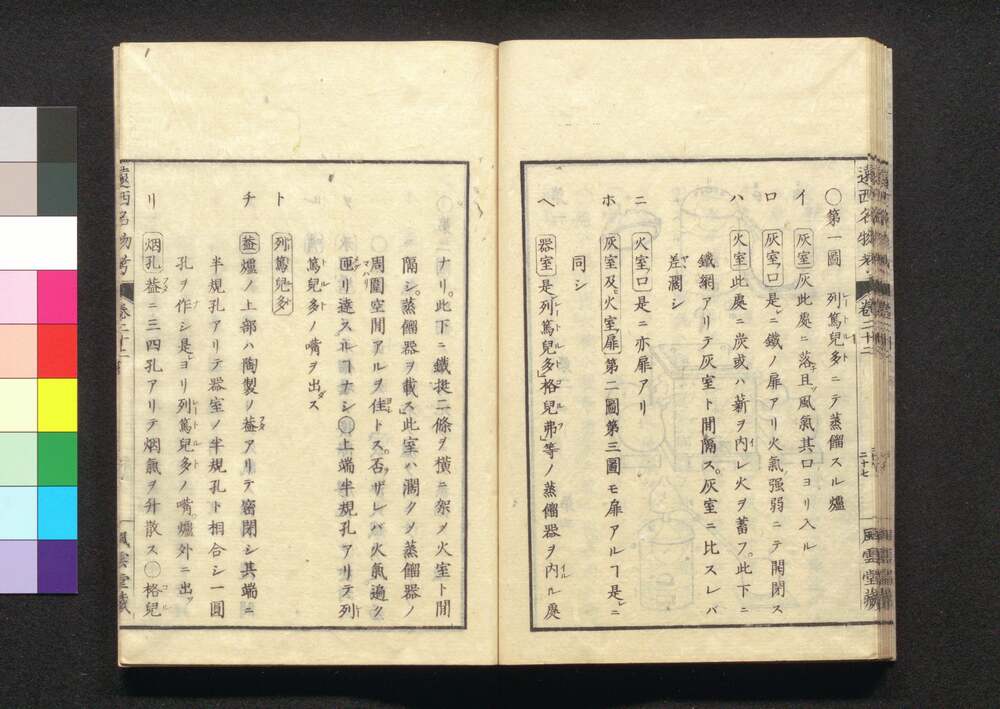 〇第一圖　列篤兒多ニテ蒸餾スル爐
イ　灰室　灰此處ニ落且風氣其口ヨリ入ル
ロ　灰室ノ口　是ニ鐵ノ扉アリ火氣強弱ニテ開閉ス
ハ　火室　此處ニ炭或ハ薪ヲ内レ火ヲ蓄フ。此下ニ
鐵網アリテ灰室ト間隔ス。灰室ニ比スレバ
差濶シ
ニ　火室ノ口　是ニ亦扉アリ
ホ　灰室及ヒ火室ノ扉　第二圖第三圖モ扉アルヿ是ニ
同シ
ヘ　器室　是レ列篤兒多」格兒弗」等ノ蒸餾器ヲ内ル處
遠西名物考　卷二十二　二十七　風雲堂藏
ナリ。此下ニ鐵挺二條ヲ橫ニ架メ火室ト間
隔シ。蒸餾器ヲ載ス」此室ハ濶クメ蒸餾器ノ
周圍空間アルヲ佳トス。否ザレバ火氣遍ク
匝リ達スルヿナシ〇上端半規孔アリテ列
篤兒多ノ嘴ヲ出ス
ト　列篤兒多
チ　蓋　爐ノ上部ハ陶製ノ蓋アリテ密閉シ其端ニ
半規孔アリテ器室ノ半規孔ト相合シ一圓
孔ヲ作シ是ヨリ列篤兒多ノ嘴爐外ニ出ツ
リ　烟孔　蓋ニ三四孔アリテ烟氣ヲ升散ス〇格兒
遠西名物考　卷二十二　風雲堂藏